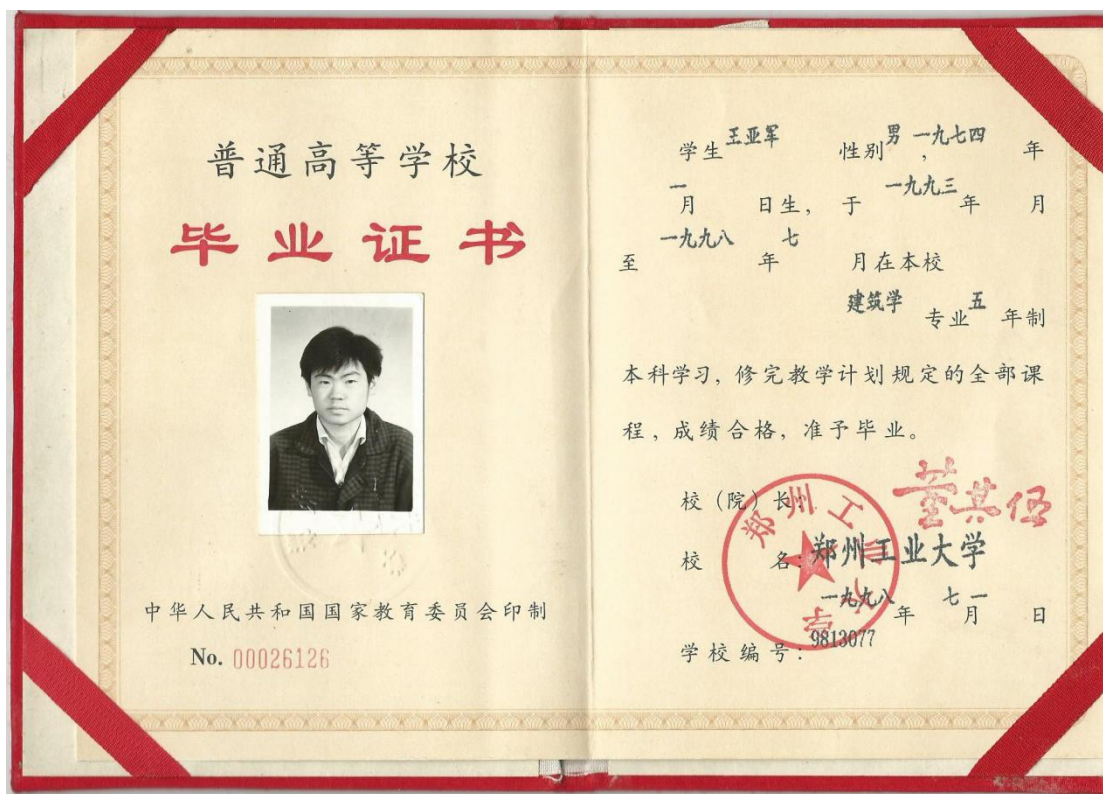 普通高等学校
毕业证书
中华人民共和国国家教育委员会印制
No. 00026126
学生 王亚军 性别 男 , 一九七四 年
一 月 日生, 于 一九九三 年 月
至 一九九八 年 七 月在本校
建筑学 专业 五 年制
本科学习, 修完教学计划规定的全部课
程, 成绩合格, 准予毕业。
校（院）长: 董其伍
校 名: 郑州工业大学
一九九八 年 七 月 一 日
学校编号: 9813077
郑州工业大学